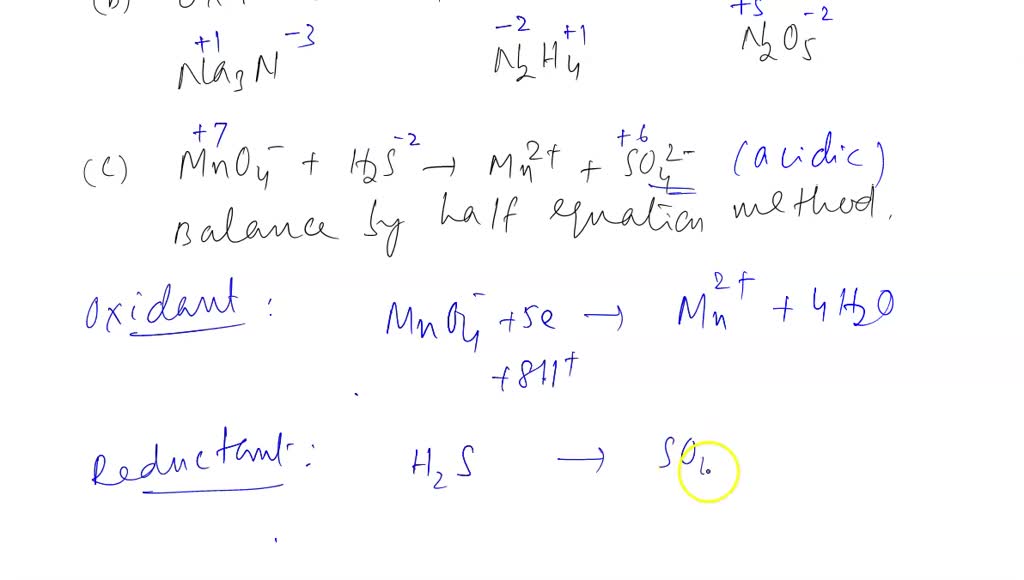 (b)
+1 -3 -2 +1 +5 -2
Na₃N N₂H₄ N₂O₅
+7 -2 +6
(c) MnO₄⁻ + H₂S → Mn²⁺ + SO₄²⁻ (acidic)
Balance by half equation method.
Oxidant : MnO₄⁻ + 5e → Mn²⁺ + 4H₂O
+ 8H⁺
Reductant : H₂S → SO